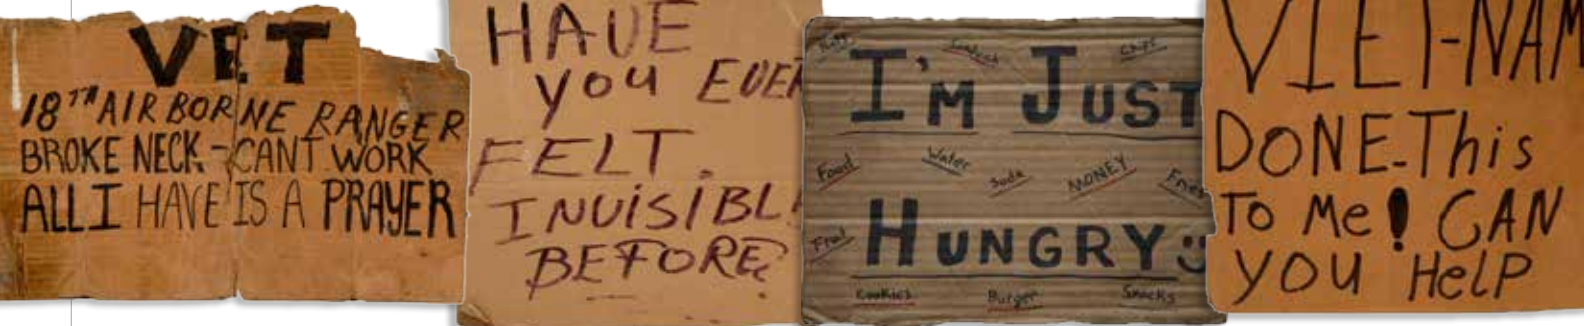 VET
18TH AIRBORNE RANGER
BROKE NECK - CANT WORK
ALL I HAVE IS A PRAYER
HAVE
you EVER
FELT
INViSiBL
BEFORE?
Sandwich Chips
I'M JUST
Food Water Soda MONEY Fries
Fruit
HUNGRY
Cookies Burger Snacks
VIET-NAM
DONE-This
To Me! CAN
YOU HeLP